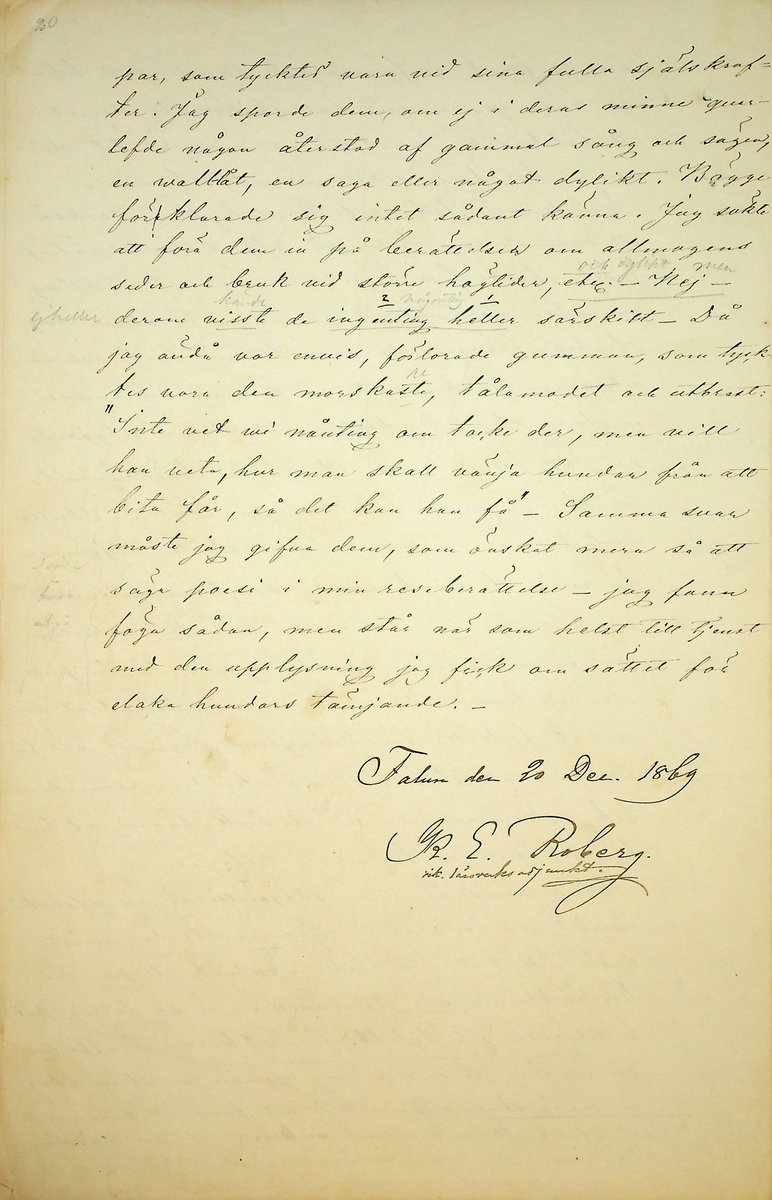 20
par, som tycktes vara vid sina fulla själskraf=
ter. Jag sporde dem, om ej i deras minne qvar-
lefde någon återstod af gammal sång och sägen,
en wallåt, en saga eller något dylikt. Bägge
förklarade sig intet sådant känna. Jag sökte
att föra dem in på berättelser om allmogens
och dylikt men
seder och bruk vid större högtider, etc. — Nej —
kände någonting
ej heller
derom visste de ingenting heller särskilt — Då
2 1
jag ändå var envis, förlorade gumman, som tyck-
tes vara den morskaste, tålamodet och utbrast:
"Inte vet wi nånting om tocke der, men vill
han veta, hur man skall vänja hundar från att
bita får, så det kan han få" — Samma svar
måste jag gifva dem, som önskat mera så att
säga poesi i min reseberättelse — jag fann
föga sådan, men står när som helst till tjenst
med den upplysning jag fick om sättet för
elaka hundars tämjande. —
Falun den 20 Dec. 1869
K. E. Roberg.
vik. läroverksadjunkt.